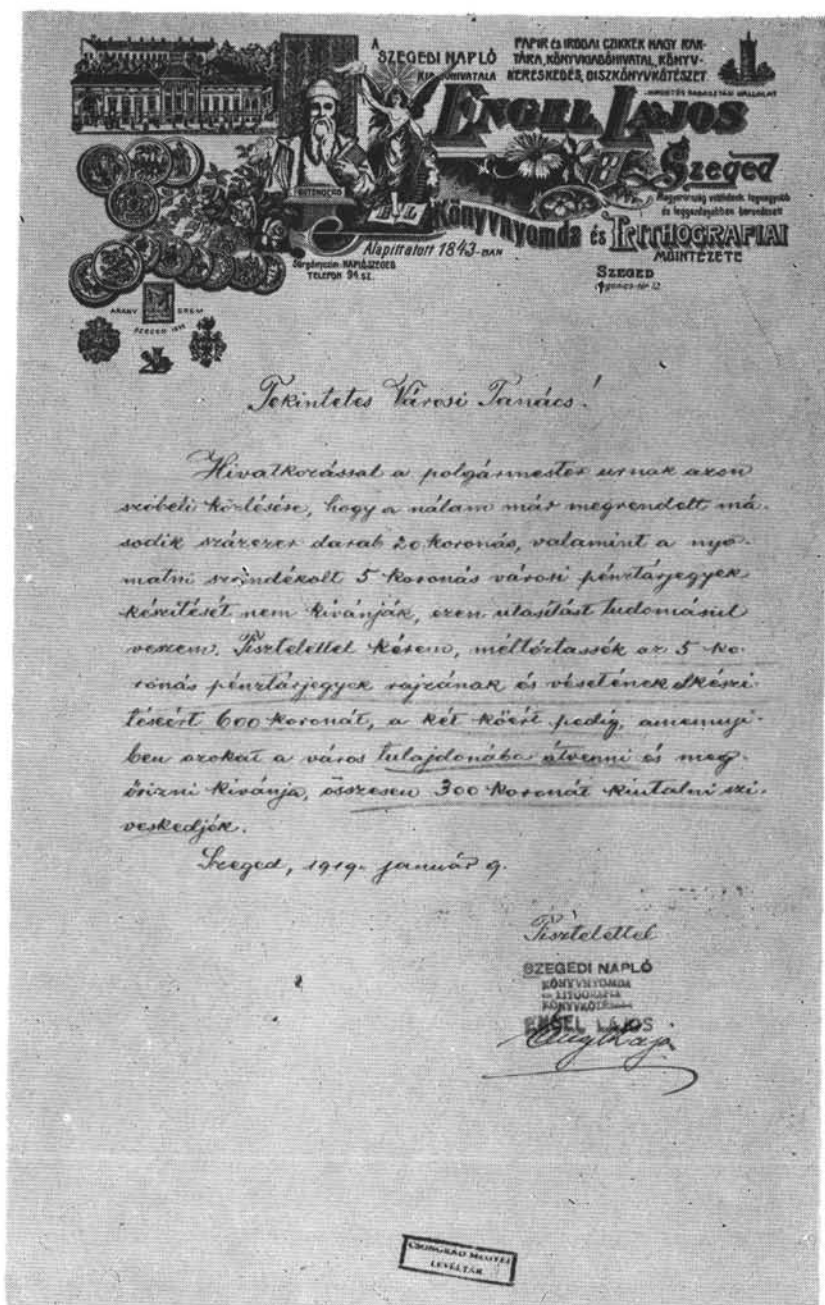 A
SZEGEDI NAPLÓ
KIADÓHIVATALA
PAPIR és IRODAI CZIKKEK NAGY RAK-
TÁRA, KÖNYVKIADÓHIVATAL, KÖNYV-
KERESKEDÉS, DISZKÖNYVKÖTÉSZET
ENGEL LAJOS
Szeged
Magyarország vidékének legnagyobb
és leggazdagabban berendezett
Könyvnyomda és LITHOGRAFIAI
MŰINTÉZETE
GUTENBERG
E L
Alapíttatott 1843-BAN
Sürgönyczim: NAPLÓ SZEGED
TELEFON 94. SZ.
SZEGED
ARANY ÉREM
SZEGED
Tekintetes Városi Tanács!
Hivatkozással a polgármester urnak azon
szóbeli közlésére, hogy a nálam már megrendelt má-
sodik százezer darab 20 koronás, valamint a nyo-
matni szándékolt 5 koronás városi pénztárjegyek
készitését nem kivánják, ezen utasitást tudomásul
veszem. Tisztelettel kérem, méltóztassék az 5 ko-
ronás pénztárjegyek rajzának és vésetének elkészi-
téseért 600 koronát, a két kőért pedig, amennyi-
ben azokat a város tulajdonába átvenni és meg-
őrizni kivánja, összesen 300 koronát kiutalni szi-
veskedjék.
Szeged, 1919. január 9.
Tisztelettel
SZEGEDI NAPLÓ
KÖNYVNYOMDA
LITOGRAFIA
ENGEL LAJOS
Engel Lajos
CSONGRÁD MEGYEI
LEVÉLTÁR